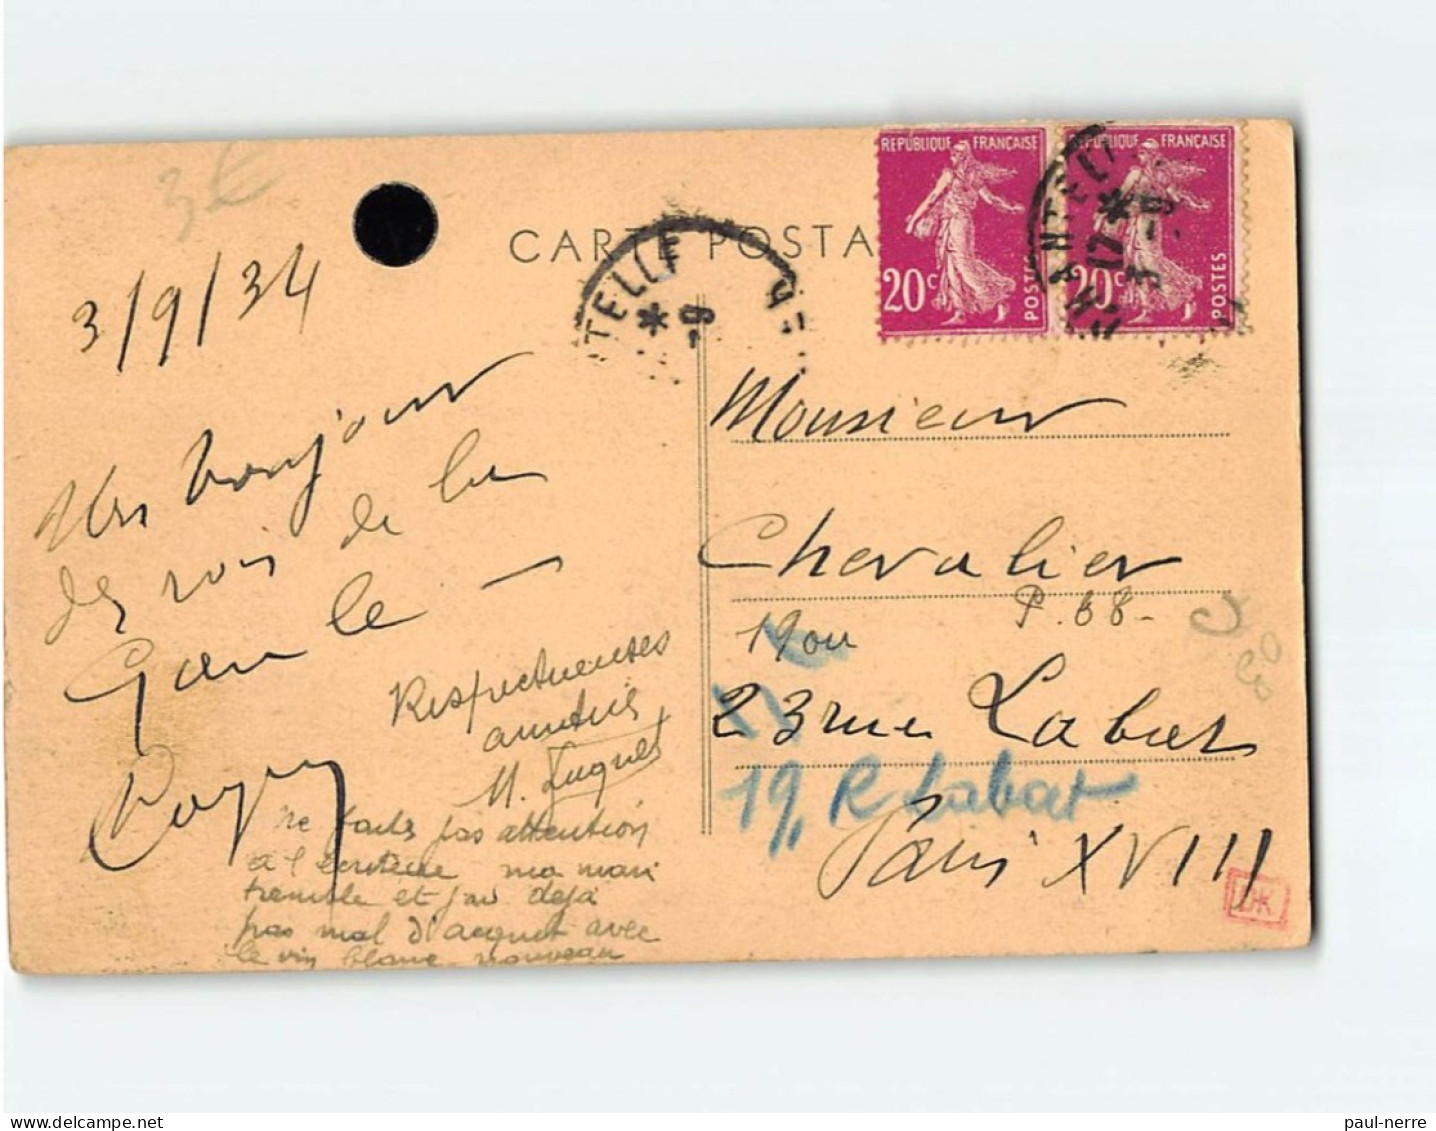 3€
3/9/34
CARTE POSTA
REPUBLIQUE FRANÇAISE
20c POSTES
REPUBLIQUE FRANÇAISE
20c POSTES
TELLE
* -9
CHANTELLE
17 *
3 -9
Un bonjour
de la
le —
Respectueuses
amitiés
M. Huguet
Ne faites pas attention
à l'écriture ma main
tremble et j'ai déjà
pas mal d'acquet avec
le vin blanc nouveau
Monsieur
Chevalier
P. 68 -
19 ou
23 rue Labat
19, R Labat
Paris XVIII
paul-nerre